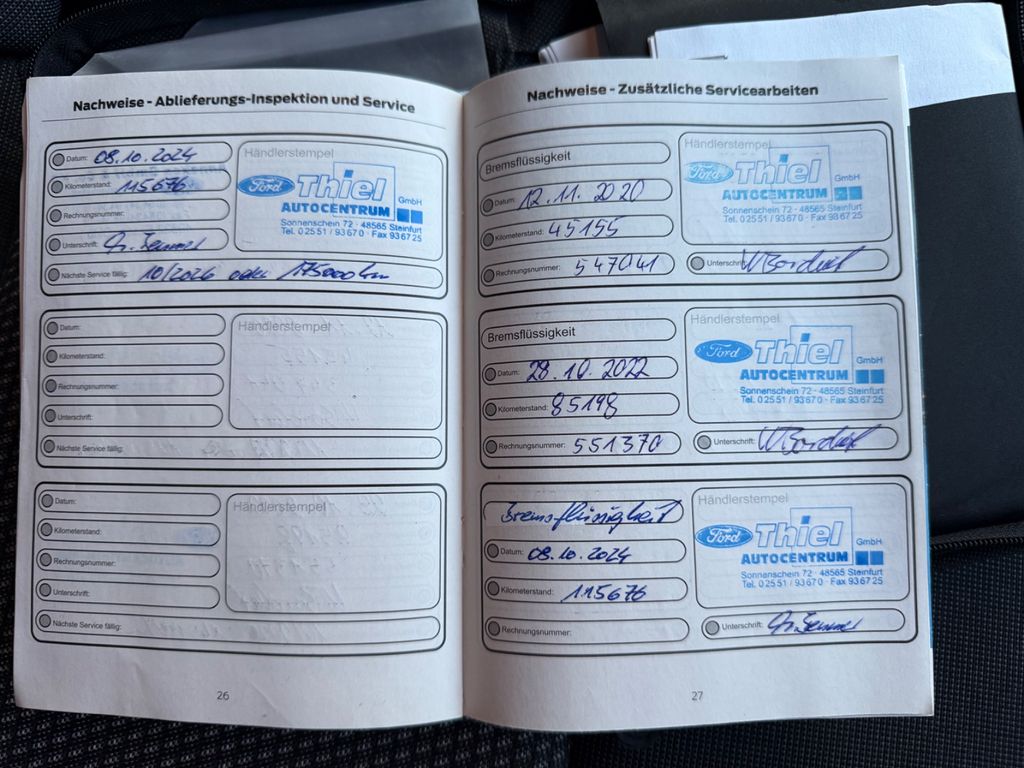 Nachweise - Ablieferungs-Inspektion und Service
Datum: 08.10.2024
Kilometerstand: 115676
Rechnungsnummer:
Unterschrift:
Nächste Service fällig: 10/2026 oder 175000 km
Händlerstempel
Ford Thiel GmbH
AUTOCENTRUM
Sonnenschein 72 · 48565 Steinfurt
Tel. 0 25 51 / 9 36 7 0 · Fax 93 67 25
Datum:
Kilometerstand:
Rechnungsnummer:
Unterschrift:
Nächste Service fällig:
Händlerstempel
Datum:
Kilometerstand:
Rechnungsnummer:
Unterschrift:
Nächste Service fällig:
Händlerstempel
26
Nachweise - Zusätzliche Servicearbeiten
Bremsflüssigkeit
Datum: 12.11.2020
Kilometerstand: 45155
Rechnungsnummer: 547041
Händlerstempel
Ford Thiel GmbH
AUTOCENTRUM
Sonnenschein 72 · 48565 Steinfurt
Tel. 0 25 51 / 9 36 7 0 · Fax 93 67 25
Unterschrift:
Bremsflüssigkeit
Datum: 28.10.2022
Kilometerstand: 85198
Rechnungsnummer: 551370
Händlerstempel
Ford Thiel GmbH
AUTOCENTRUM
Sonnenschein 72 · 48565 Steinfurt
Tel. 0 25 51 / 9 36 7 0 · Fax 93 67 25
Unterschrift:
Bremsflüssigkeit
Datum: 08.10.2024
Kilometerstand: 115676
Rechnungsnummer:
Händlerstempel
Ford Thiel GmbH
AUTOCENTRUM
Sonnenschein 72 · 48565 Steinfurt
Tel. 0 25 51 / 9 36 7 0 · Fax 93 67 25
Unterschrift:
27